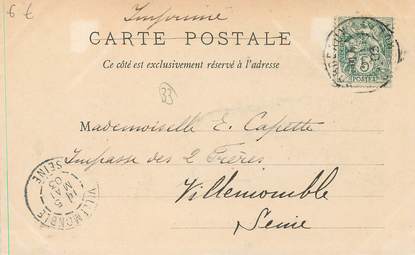 6 €
Imprimé
CARTE POSTALE
Ce côté est exclusivement réservé à l'adresse
5
POSTES
33
Mademoiselle E. Capette
Impasse des 2 Frères
Villemomble
Seine
VILLEMOMBLE
SEINE
5
MAI
03